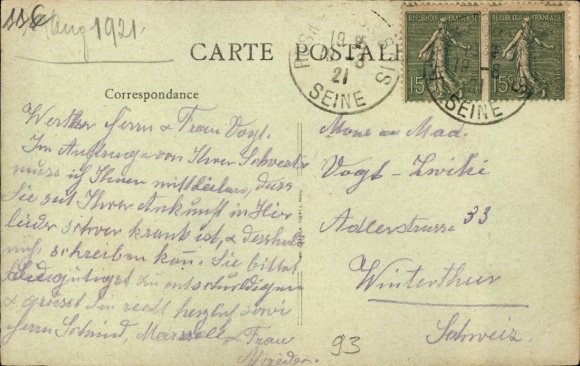 Aug 1921.
CARTE POSTALE
RÉPUBLIQUE FRANÇAISE RÉPUBLIQUE FRANÇAISE
15c 15c
19
21
SEINE SEINE
Correspondance
Werther Herrn & Frau Vogt.
Im Auftrage von Ihrer Schwester
muss ich Ihnen mittheilen, dass
Sie seit Ihrer Ankunft in Hier
leider schwer krank ist, & desshalb
nicht schreiben kön. Sie bittet
Sie gütigst zu entschuldigen
& grüsst Sie recht herzlich sowie
Herrn Schmid, & Frau
Mons. et Mad.
Vogt-Zwiki
Adlerstrasse 33
Winterthur
Schweiz.
93